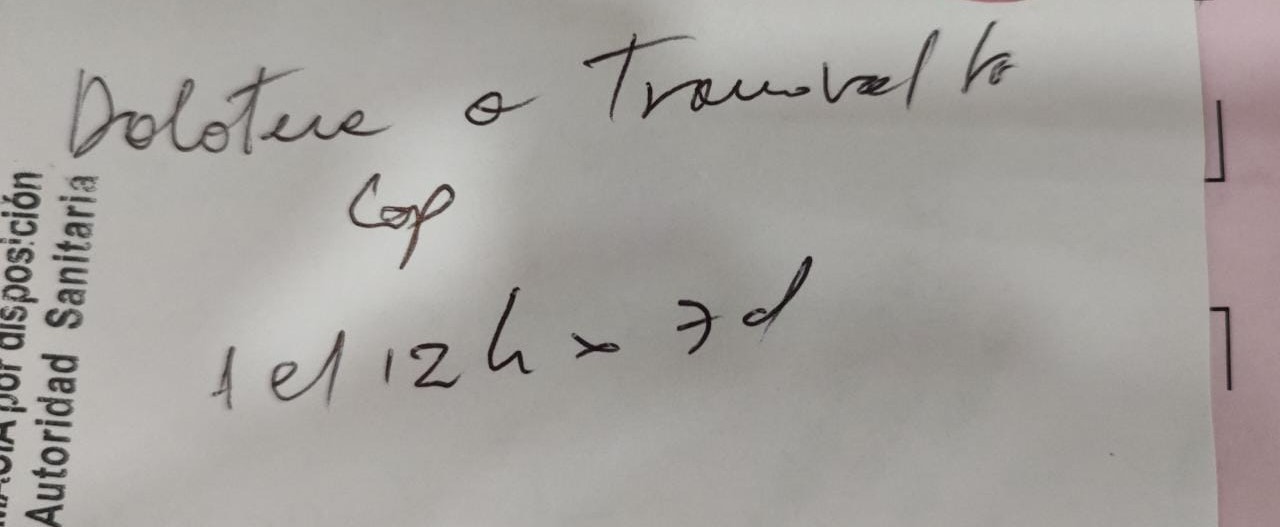 Doloteve o Tramovel fo
Cap
1 c/ 12 h x 7 d
por disposición
Autoridad Sanitaria